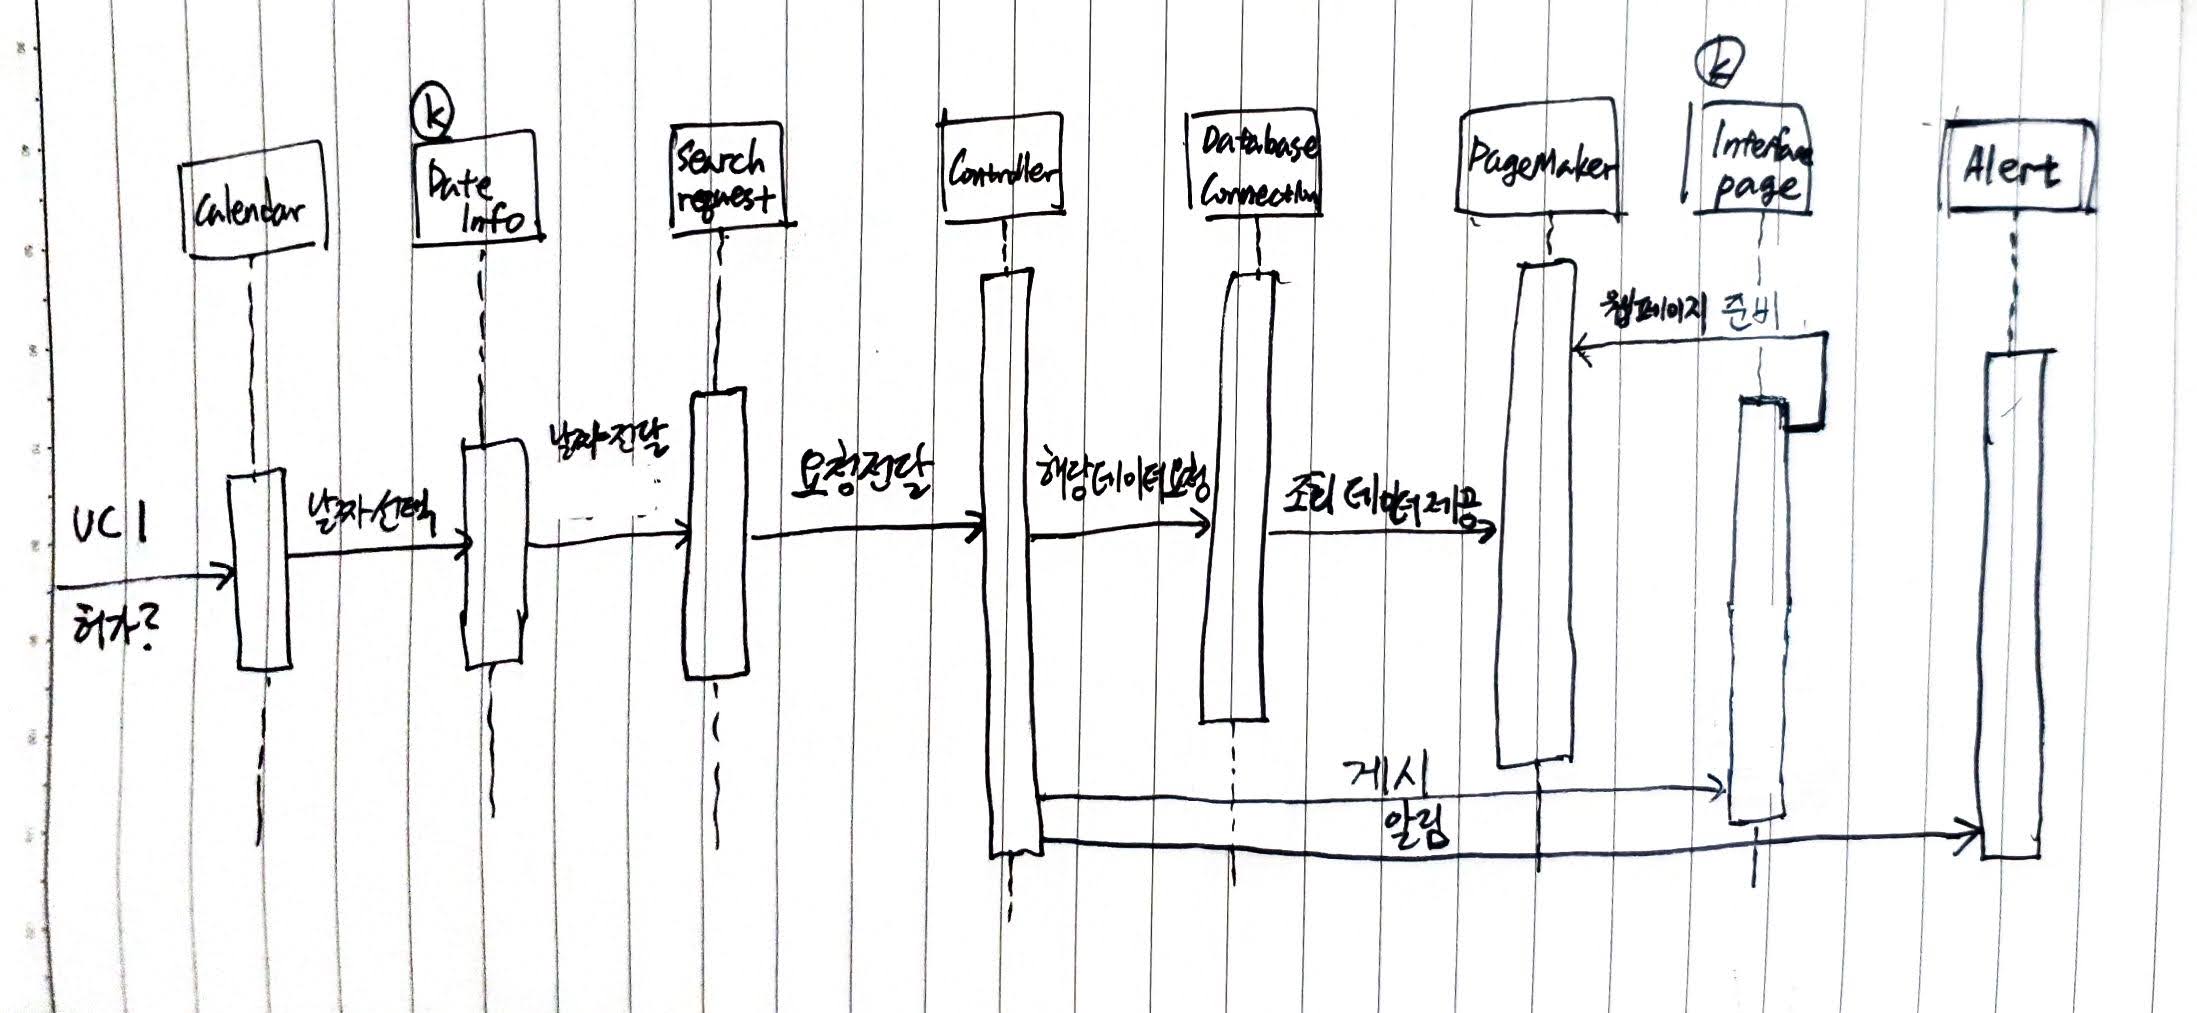 k
k
Calendar
Date
Info
Search
request
Controller
Database
Connection
PageMaker
Interface
page
Alert
웹페이지 준비
UC1
허가?
날짜 선택
날짜 전달
요청 전달
해당 데이터 요청
조회 데이터 제공
게시
알림